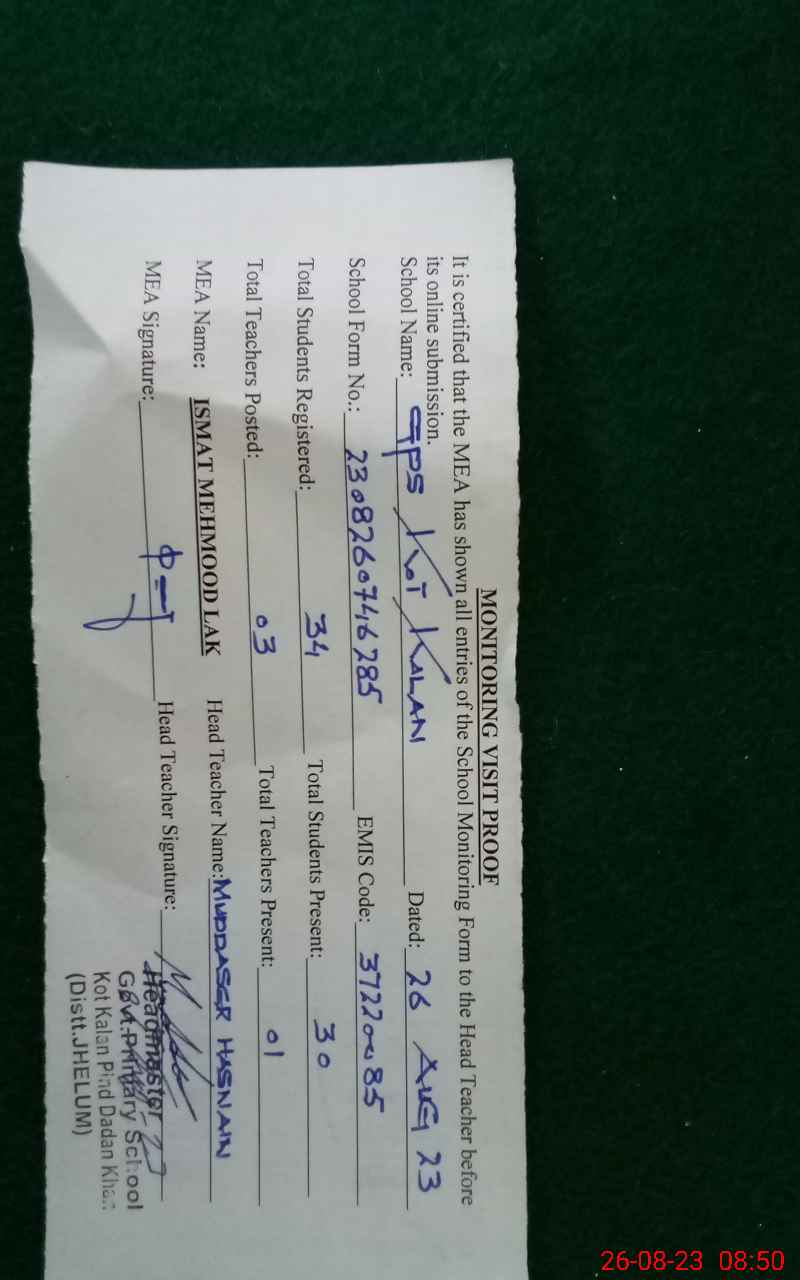 MONITORING VISIT PROOF
It is certified that the MEA has shown all entries of the School Monitoring Form to the Head Teacher before
its online submission.
School Name: GPS KOT KALAN Dated: 26 AUG 23
School Form No.: 230826074628 5 EMIS Code: 37220085
Total Students Registered: 34 Total Students Present: 30
Total Teachers Posted: 03 Total Teachers Present: 01
MEA Name: ISMAT MEHMOOD LAK Head Teacher Name: MUDDASER HASNAIN
MEA Signature: Head Teacher Signature:
Headmaster
Govt. Primary School
Kot Kalan Pind Dadan Khan
(Distt. JHELUM)
26-08-23 08:50